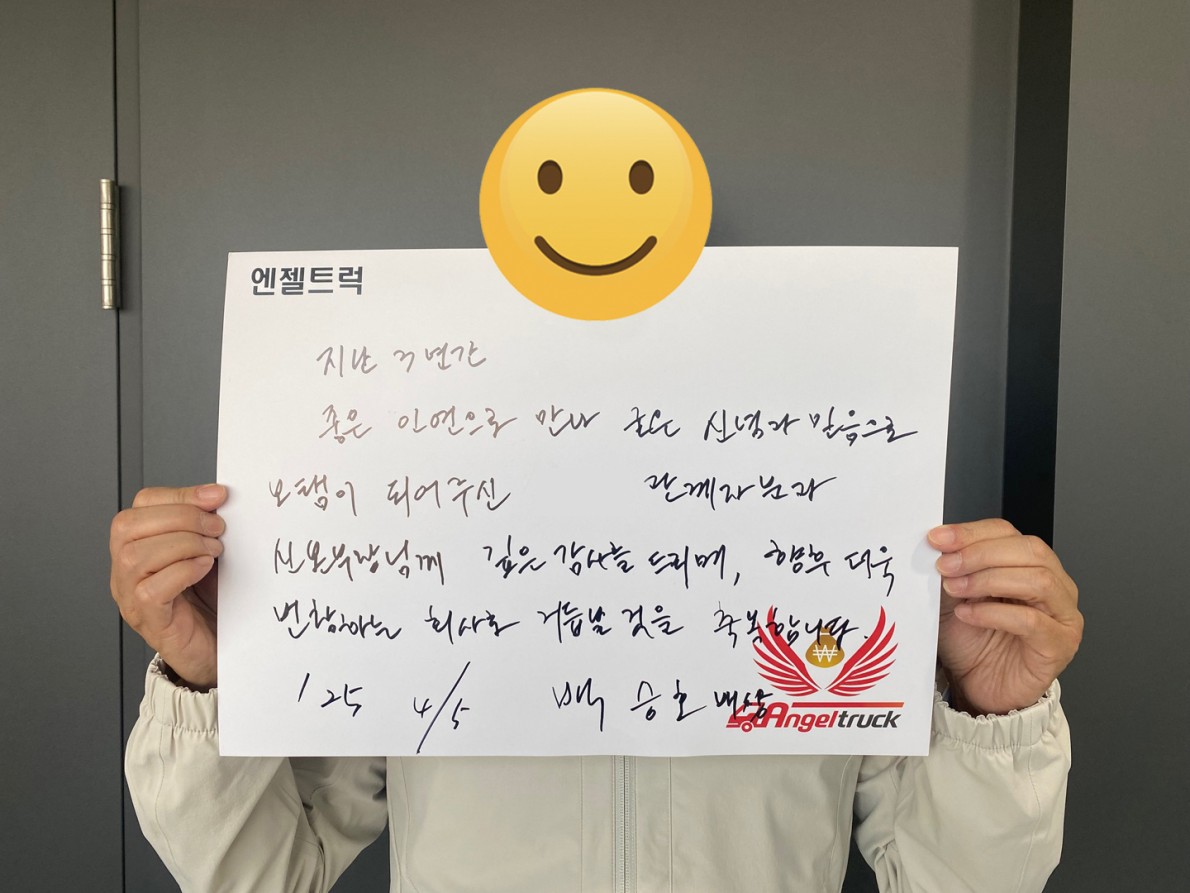 엔젤트럭
지난 3년간
좋은 인연으로 만나 굳은 신념과 믿음으로
보탬이 되어주신 관계자분과
신보부장님께 깊은 감사를 드리며, 향후 더욱
번창하는 회사로 거듭날 것을 축복합니다.
'25 4/5 백승호 배상
₩
Angeltruck